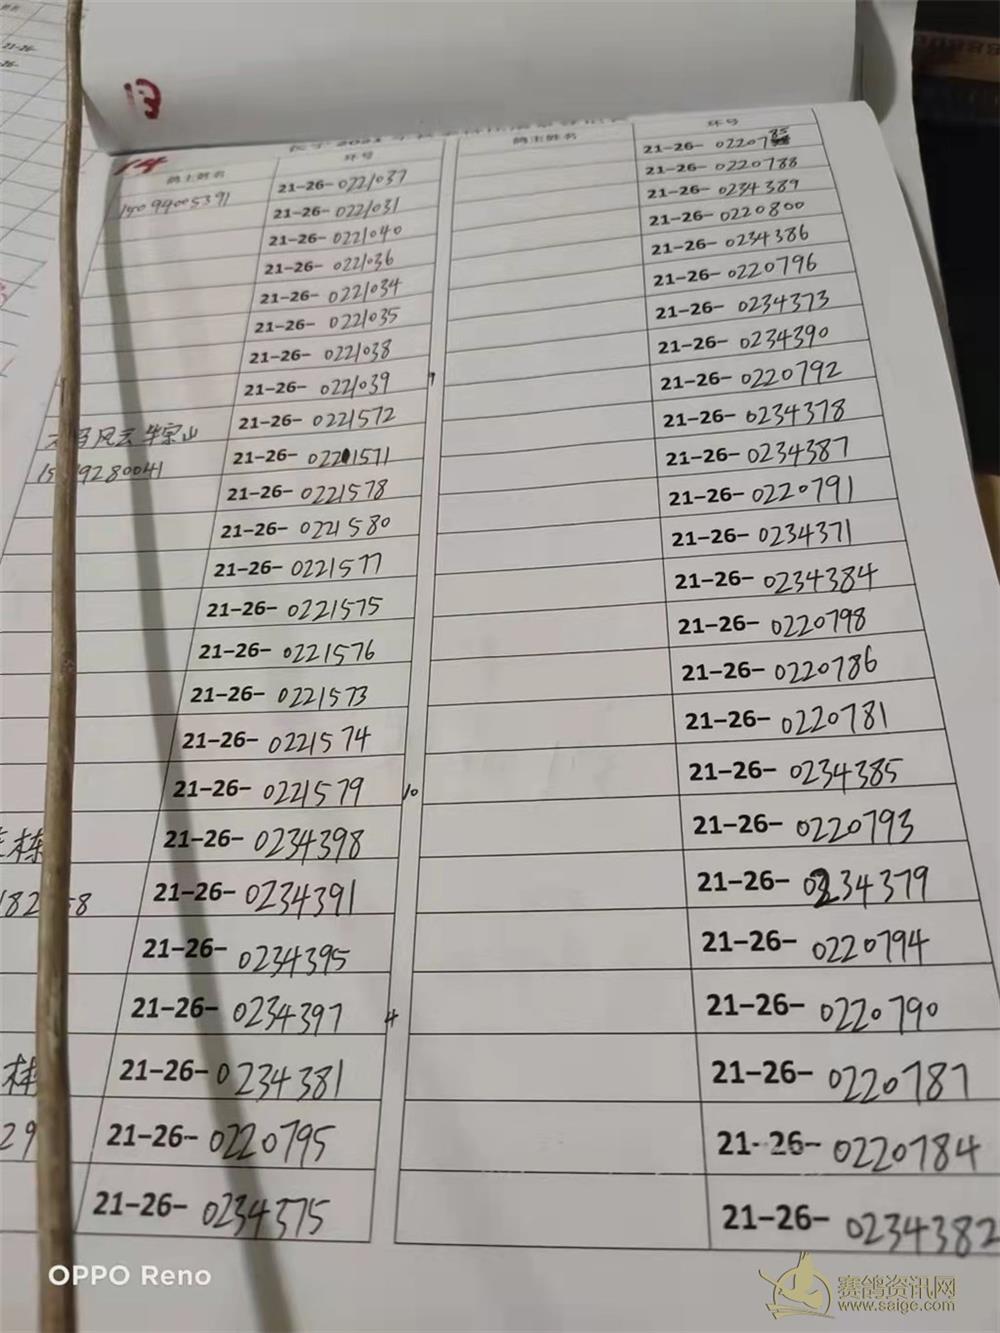 13
14
鸽主姓名
环号
21-26-0221037
21-26-0221031
21-26-0221040
21-26-0221036
21-26-0221034
21-26-0221035
21-26-0221038
21-26-0221039
21-26-0221572
风云 牛宗山
21-26-0221571
9280041
21-26-0221578
21-26-0221580
21-26-0221577
21-26-0221575
21-26-0221576
21-26-0221573
21-26-0221574
21-26-0221579
10
21-26-0234398
栋
21-26-0234391
21-26-0234395
21-26-0234397
4
21-26-0234381
21-26-0220795
29
21-26-0234375
鸽主姓名
环号
21-26-0220785
21-26-0220788
21-26-0234389
21-26-0220800
21-26-0234386
21-26-0220796
21-26-0234373
21-26-0234390
21-26-0220792
21-26-0234378
21-26-0234387
21-26-0220791
21-26-0234371
21-26-0234384
21-26-0220798
21-26-0220786
21-26-0220781
21-26-0234385
21-26-0220793
21-26-0234379
21-26-0220794
21-26-0220790
21-26-0220787
21-26-0220784
21-26-0234382
OPPO Reno
赛鸽资讯网
www.saige.com